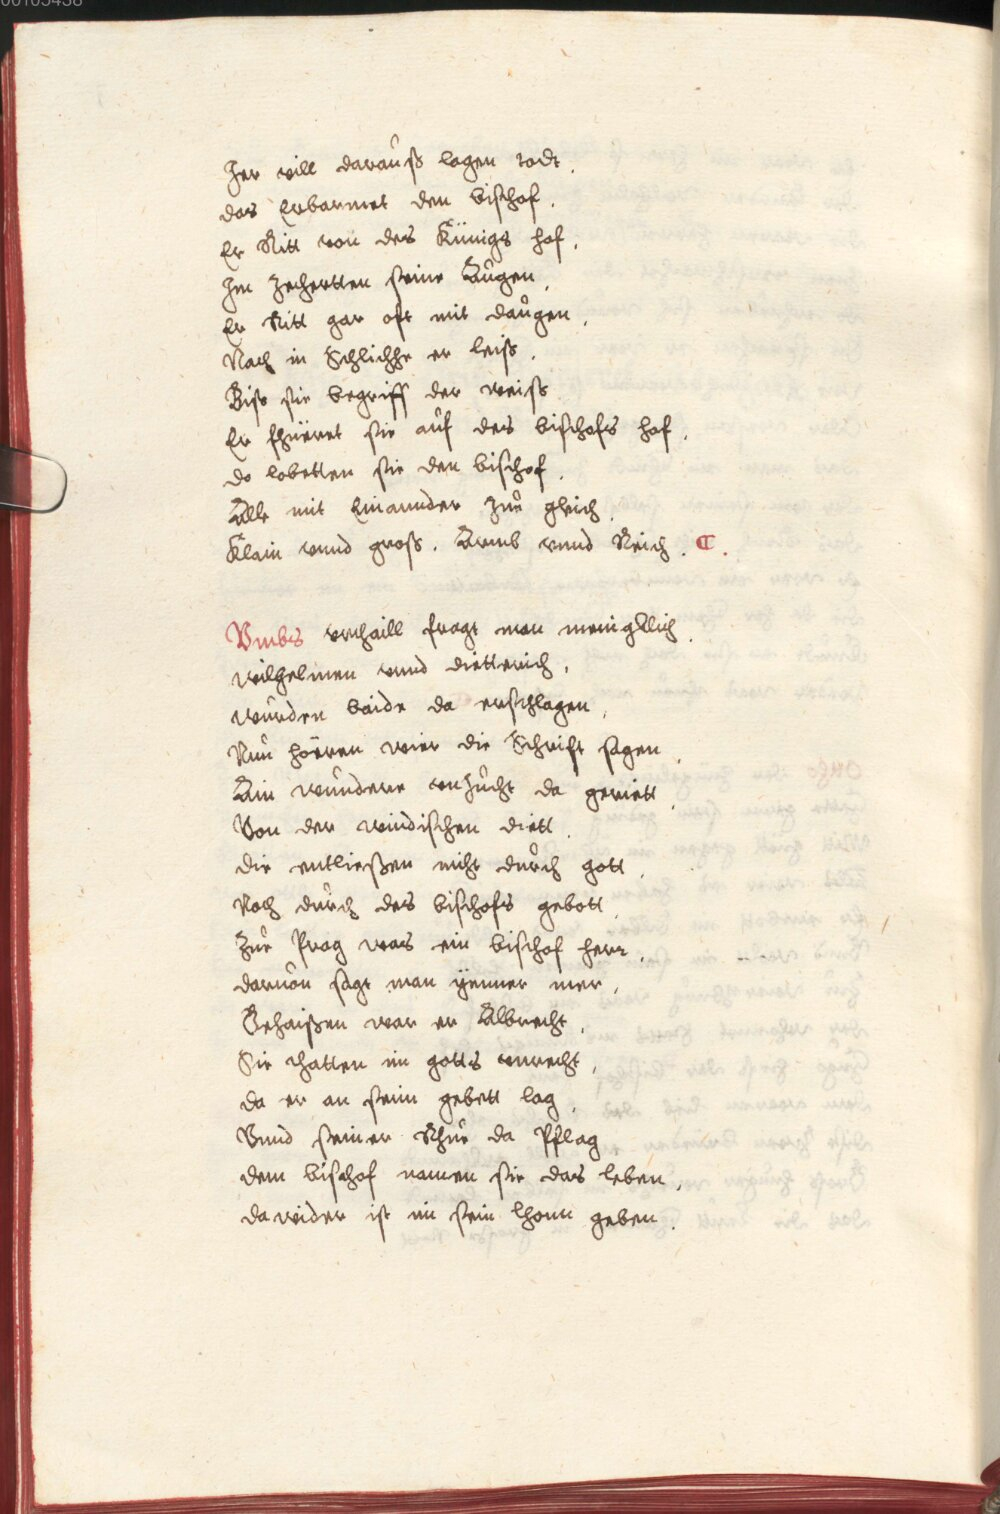 Her vill darauß lagen todt.
das Erbarmet den bischof.
Er Ritt von des Künigs hof.
Jm zechertten seine Augen.
Er Ritt gar oft mit daugen.
Nach in Schlichhe er leiß.
Biß sie begriff der weiß
Er fhüeret sie auf des bischofs hof.
do lobetten sie den bischof.
Alle mit Einannder zue gleich.
Klain vnnd groß. Armb vnnd Reich. ¶.
Vmbs vrthaill fragt man menigklich.
wilhelmen vnnd dietterich.
wurden baide da erschlagen.
Nun hörren wier die Schrift sagen.
Ain wundere vnzucht da geriett.
Von der windischen diett.
die entließen nicht durch gott.
Noch durch des bischofs gebott.
Zue Prag was ein bischof herr.
daruon sagt man ÿemer mer.
Gehaißen war er Albrecht.
Sie thatten im gotts vnrecht.
da er an seim gebett lag.
Vnnd seiner Rhue da Pflag.
dem bischof namen sie das leben.
da wider ist im sein lhonn geben.